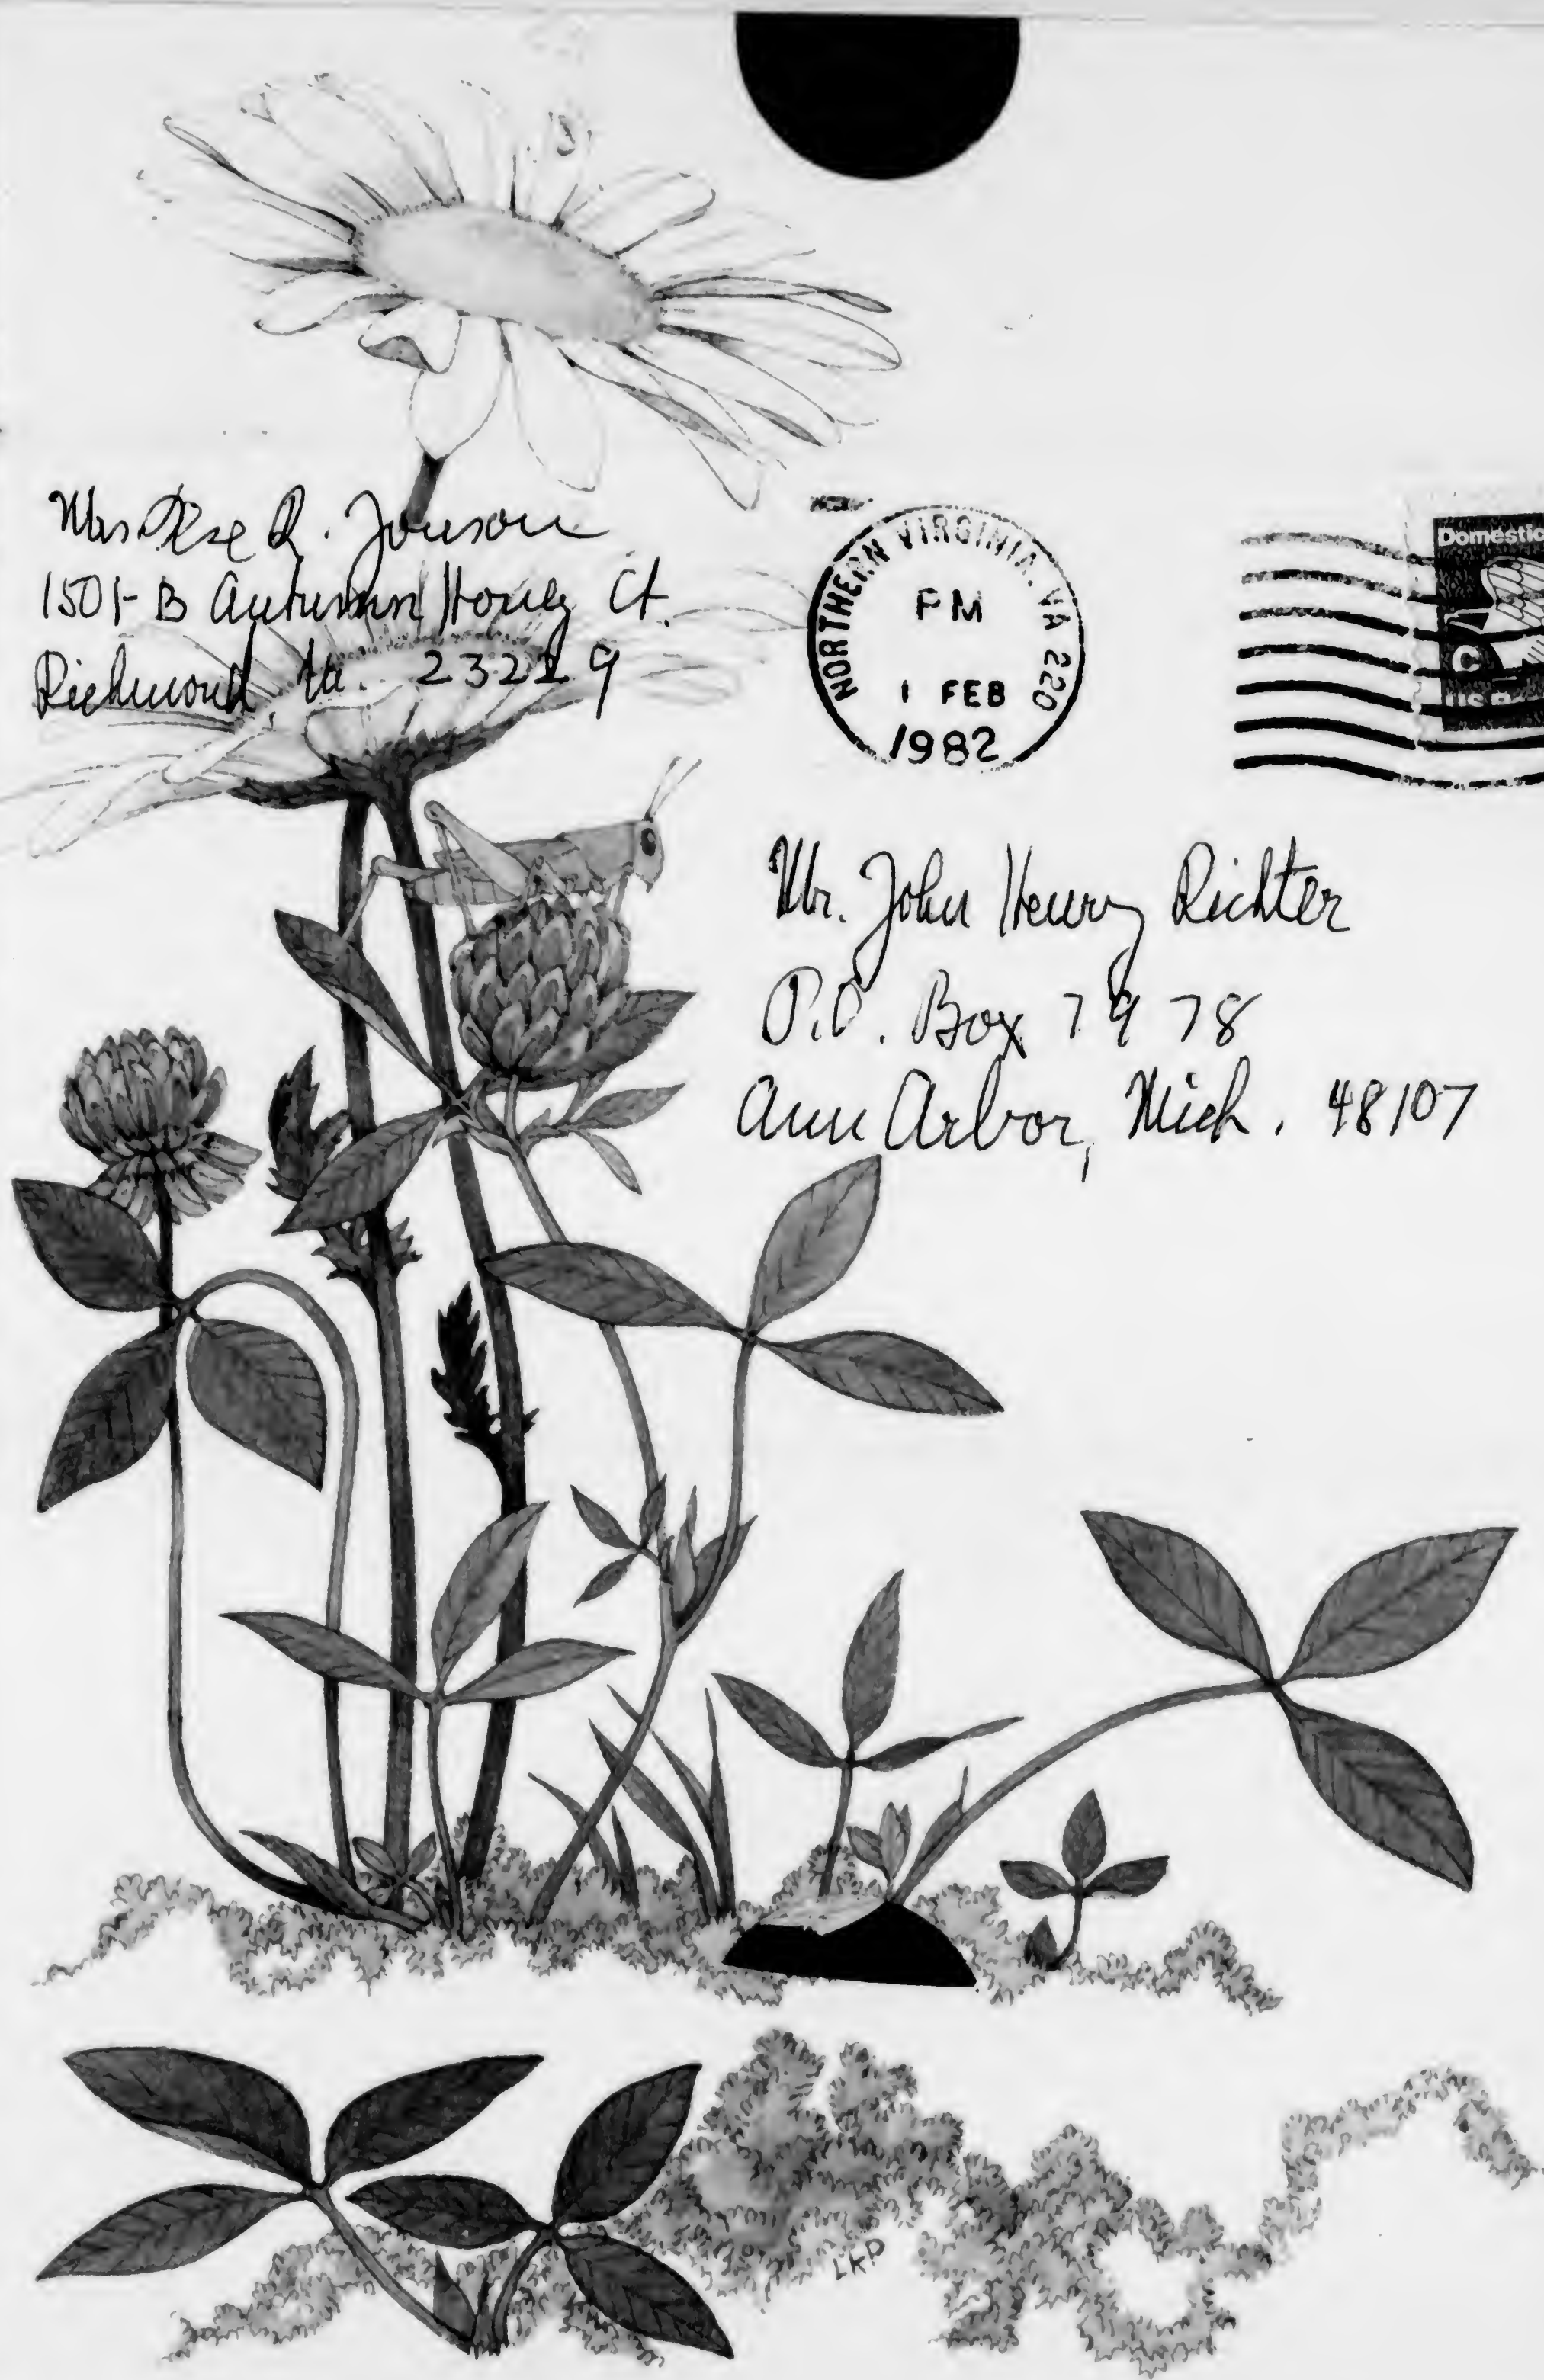 Mrs Ilse R. Jonson
1501-B Autumn Honey Ct.
Richmond Va. 23229
NORTHERN VIRGINIA. VA 220
PM
1 FEB
1982
Domestic
C
US
Mr. John Henry Richter
P.O. Box 7978
Ann Arbor, Mich. 48107
LKP